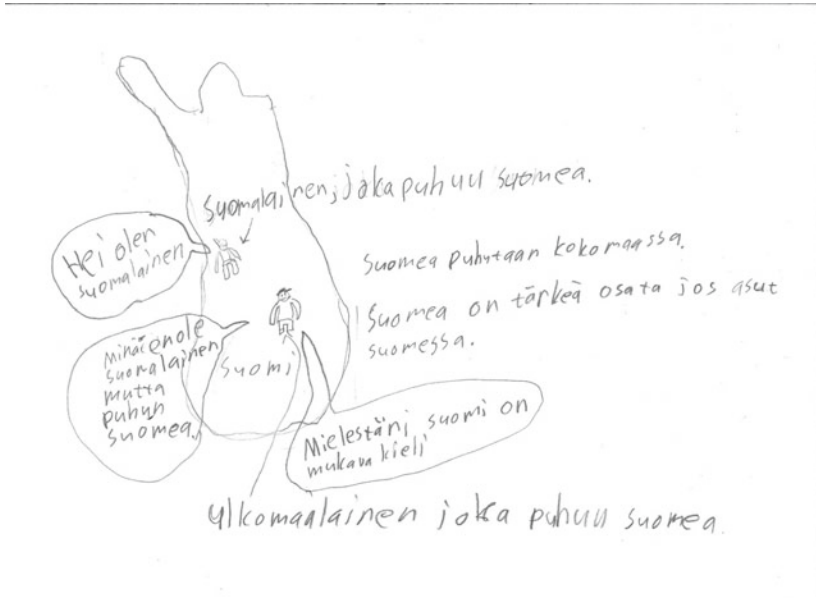 Suomalainen, joka puhuu suomea.
Hei olen
suomalainen
Suomea puhutaan kokomaassa.
Suomea on tärkeä osata jos asut
suomessa.
Minä en ole
suomalainen
mutta
puhun
suomea.
Suomi
Mielestäni suomi on
mukava kieli
ulkomaalainen joka puhuu suomea.